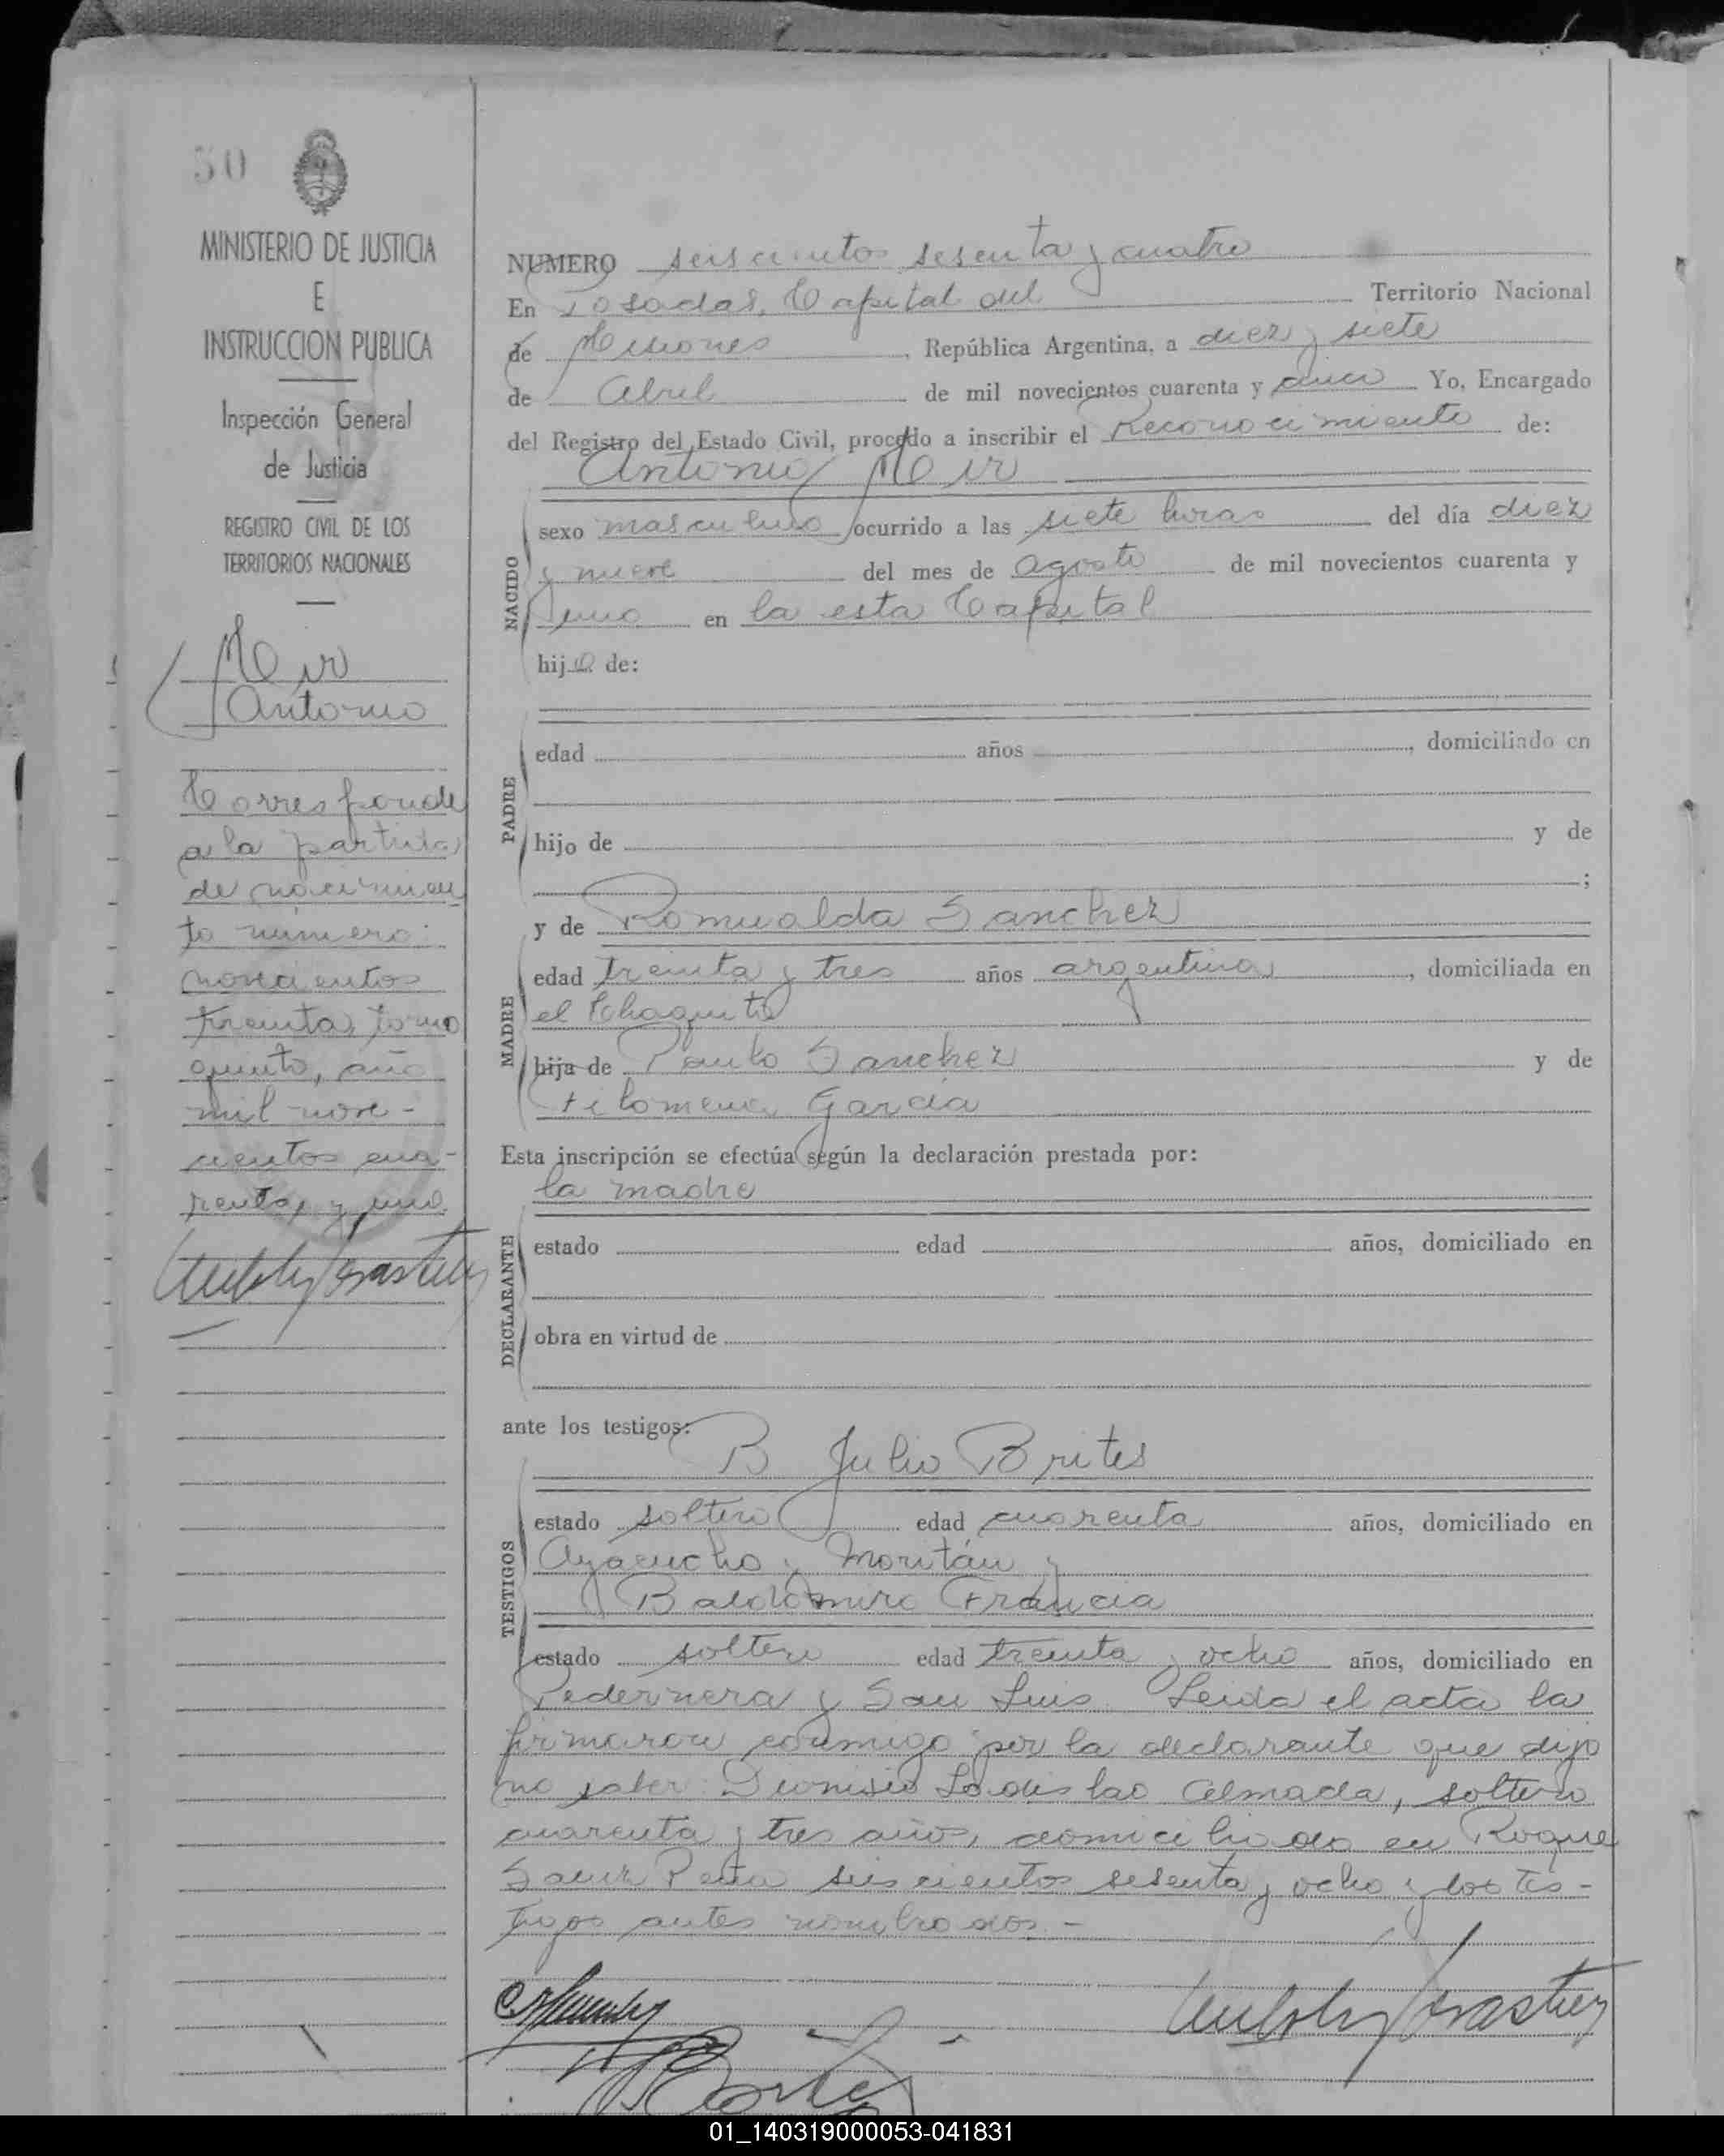 50
MINISTERIO DE JUSTICIA
E
INSTRUCCION PUBLICA
Inspección General
de Justicia
REGISTRO CIVIL DE LOS
TERRITORIOS NACIONALES
Meir
Antonio
Corresponde
a la partida
de nacimien
to número:
novecientos
treinta, tomo
quinto, año
mil nove-
cientos cua-
renta y uno.
NUMERO seiscientos sesenta y cuatro
En Posadas, Capital del Territorio Nacional
de Misiones, República Argentina, a diez y siete
de Abril de mil novecientos cuarenta y cinco Yo, Encargado
del Registro del Estado Civil, procedo a inscribir el Reconocimiento de:
Antonio Meir
NACIDO
sexo masculino ocurrido a las siete horas del día diez
y nueve del mes de agosto de mil novecientos cuarenta y
uno en la esta Capital
hijo de:
PADRE
edad años , domiciliado en
hijo de y de
;
MADRE
y de Romualda Sanchez
edad treinta y tres años argentina, domiciliada en
el Chaquito
hija de Sanchez y de
Filomena Garcia
Esta inscripción se efectúa según la declaración prestada por:
la madre
DECLARANTE
estado edad años, domiciliado en
obra en virtud de
ante los testigos:
TESTIGOS
B Julio Brites
estado soltero edad cuarenta años, domiciliado en
Ayacucho y Moritán y
Baldomiro Francia
estado soltero edad treinta y ocho años, domiciliado en
Pedernera y San Luis. Leida el acta la
firmaron conmigo por la declarante que dijo
no saber: Dionisio Ladislao Almada, soltero
cuarenta y tres años, domiciliado en Roque
Saenz Peña seiscientos sesenta y ocho y los tes-
tigos antes nombrados.-
01_140319000053-041831